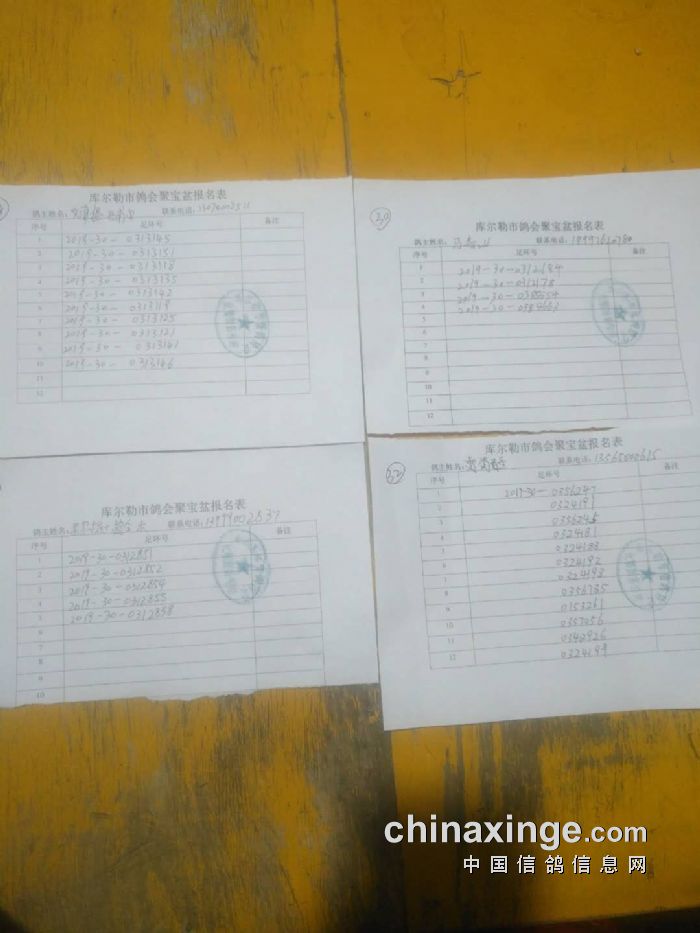 库尔勒市鸽会聚宝盆报名表
鸽主姓名: 联系电话:
序号 足环号 备注
1 2019-30-0313145
2 2019-30-0313151
3 2019-30-0313118
4 2019-30-0313135
5 2019-30-0313142
6 2019-30-0313119
7 2019-30-0313125
8 2019-30-0313121
9 2019-30-0313141
10 2019-30-0313146
11
12
30
库尔勒市鸽会聚宝盆报名表
鸽主姓名: 联系电话:
序号 足环号 备注
1 2019-30-0312684
2 2019-30-0312178
3 2019-30-0388654
4 2019-30-
5
6
7
8
9
10
11
12
库尔勒市鸽会聚宝盆报名表
鸽主姓名: 联系电话: 13999002537
序号 足环号 备注
1 2019-30-0312851
2 2019-30-0312852
3 2019-30-0312854
4 2019-30-0312855
5 2019-30-0312858
6
7
8
9
10
32
库尔勒市鸽会聚宝盆报名表
鸽主姓名: 联系电话: 13565000615
序号 足环号 备注
1 2019-30-0356247
2 0324191
3 0356245
4 0324181
5 0324188
6 0324192
7 0324193
8 0356785
9 0153261
10 0357056
11 0342926
12 0324199
chinaxinge.com
中国信鸽信息网